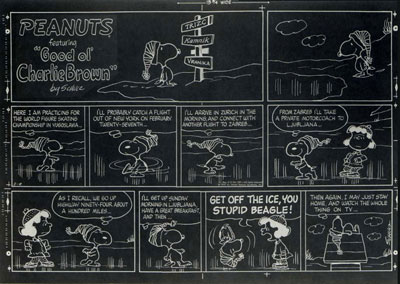 13¾ WIDE
PEANUTS
featuring
"Good ol'
Charlie Brown"
by Schulz
TRZIC
Kamnik
VRANSKA
HERE I AM PRACTICING FOR
THE WORLD FIGURE SKATING
CHAMPIONSHIP IN YUGOSLAVIA..
I'LL PROBABLY CATCH A FLIGHT
OUT OF NEW YORK ON FEBRUARY
TWENTY-SEVENTH...
I'LL ARRIVE IN ZURICH IN THE
MORNING AND CONNECT WITH
ANOTHER FLIGHT TO ZAGREB...
FROM ZAGREB I'LL TAKE
A PRIVATE MOTORCOACH TO
LJUBLJANA...
AS I RECALL, WE GO UP
HIGHWAY NINETY-FOUR ABOUT
A HUNDRED MILES...
I'LL GET UP SUNDAY
MORNING IN LJUBLJANA,
HAVE A GREAT BREAKFAST,
AND THEN...
GET OFF THE ICE, YOU
STUPID BEAGLE!
THEN AGAIN, I MAY JUST STAY
HOME, AND WATCH THE WHOLE
THING ON TV...